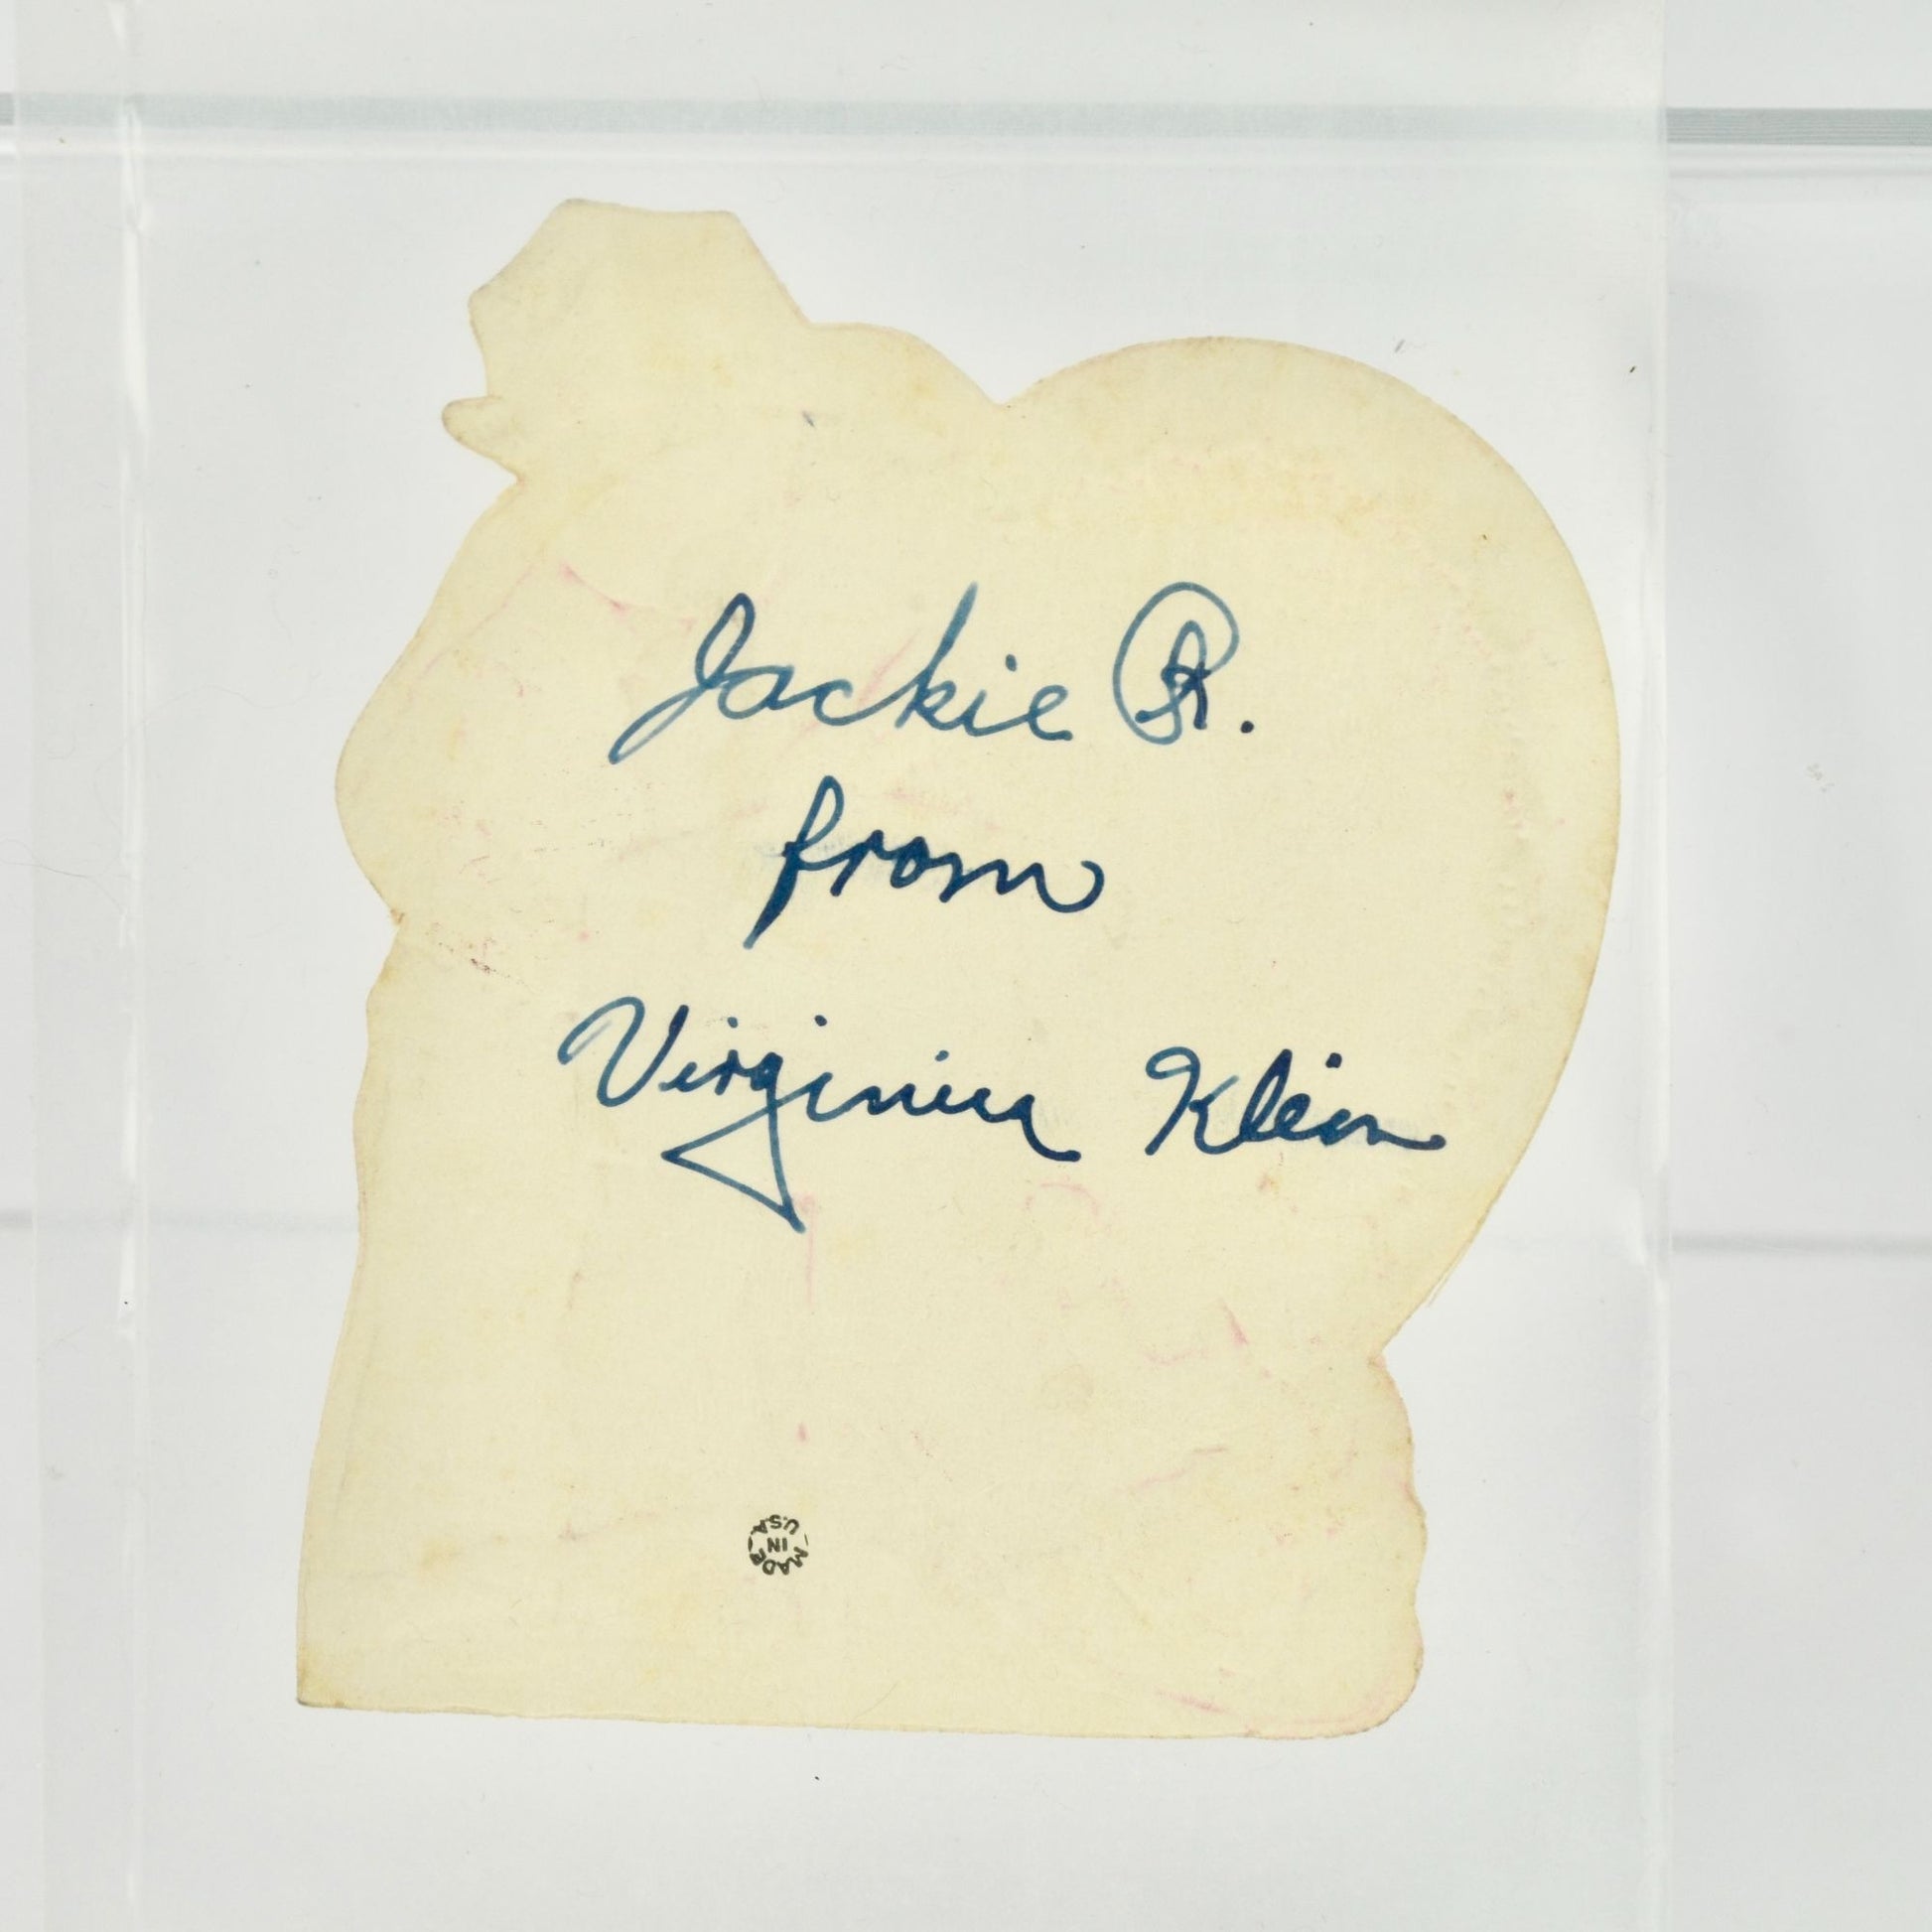 Jackie R.
from
Virginia Klein
MADE
IN
U.S.A.